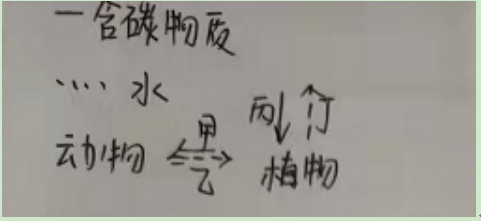 一含碳物质
.... 水
甲 丙 汀
动物 植物
乙